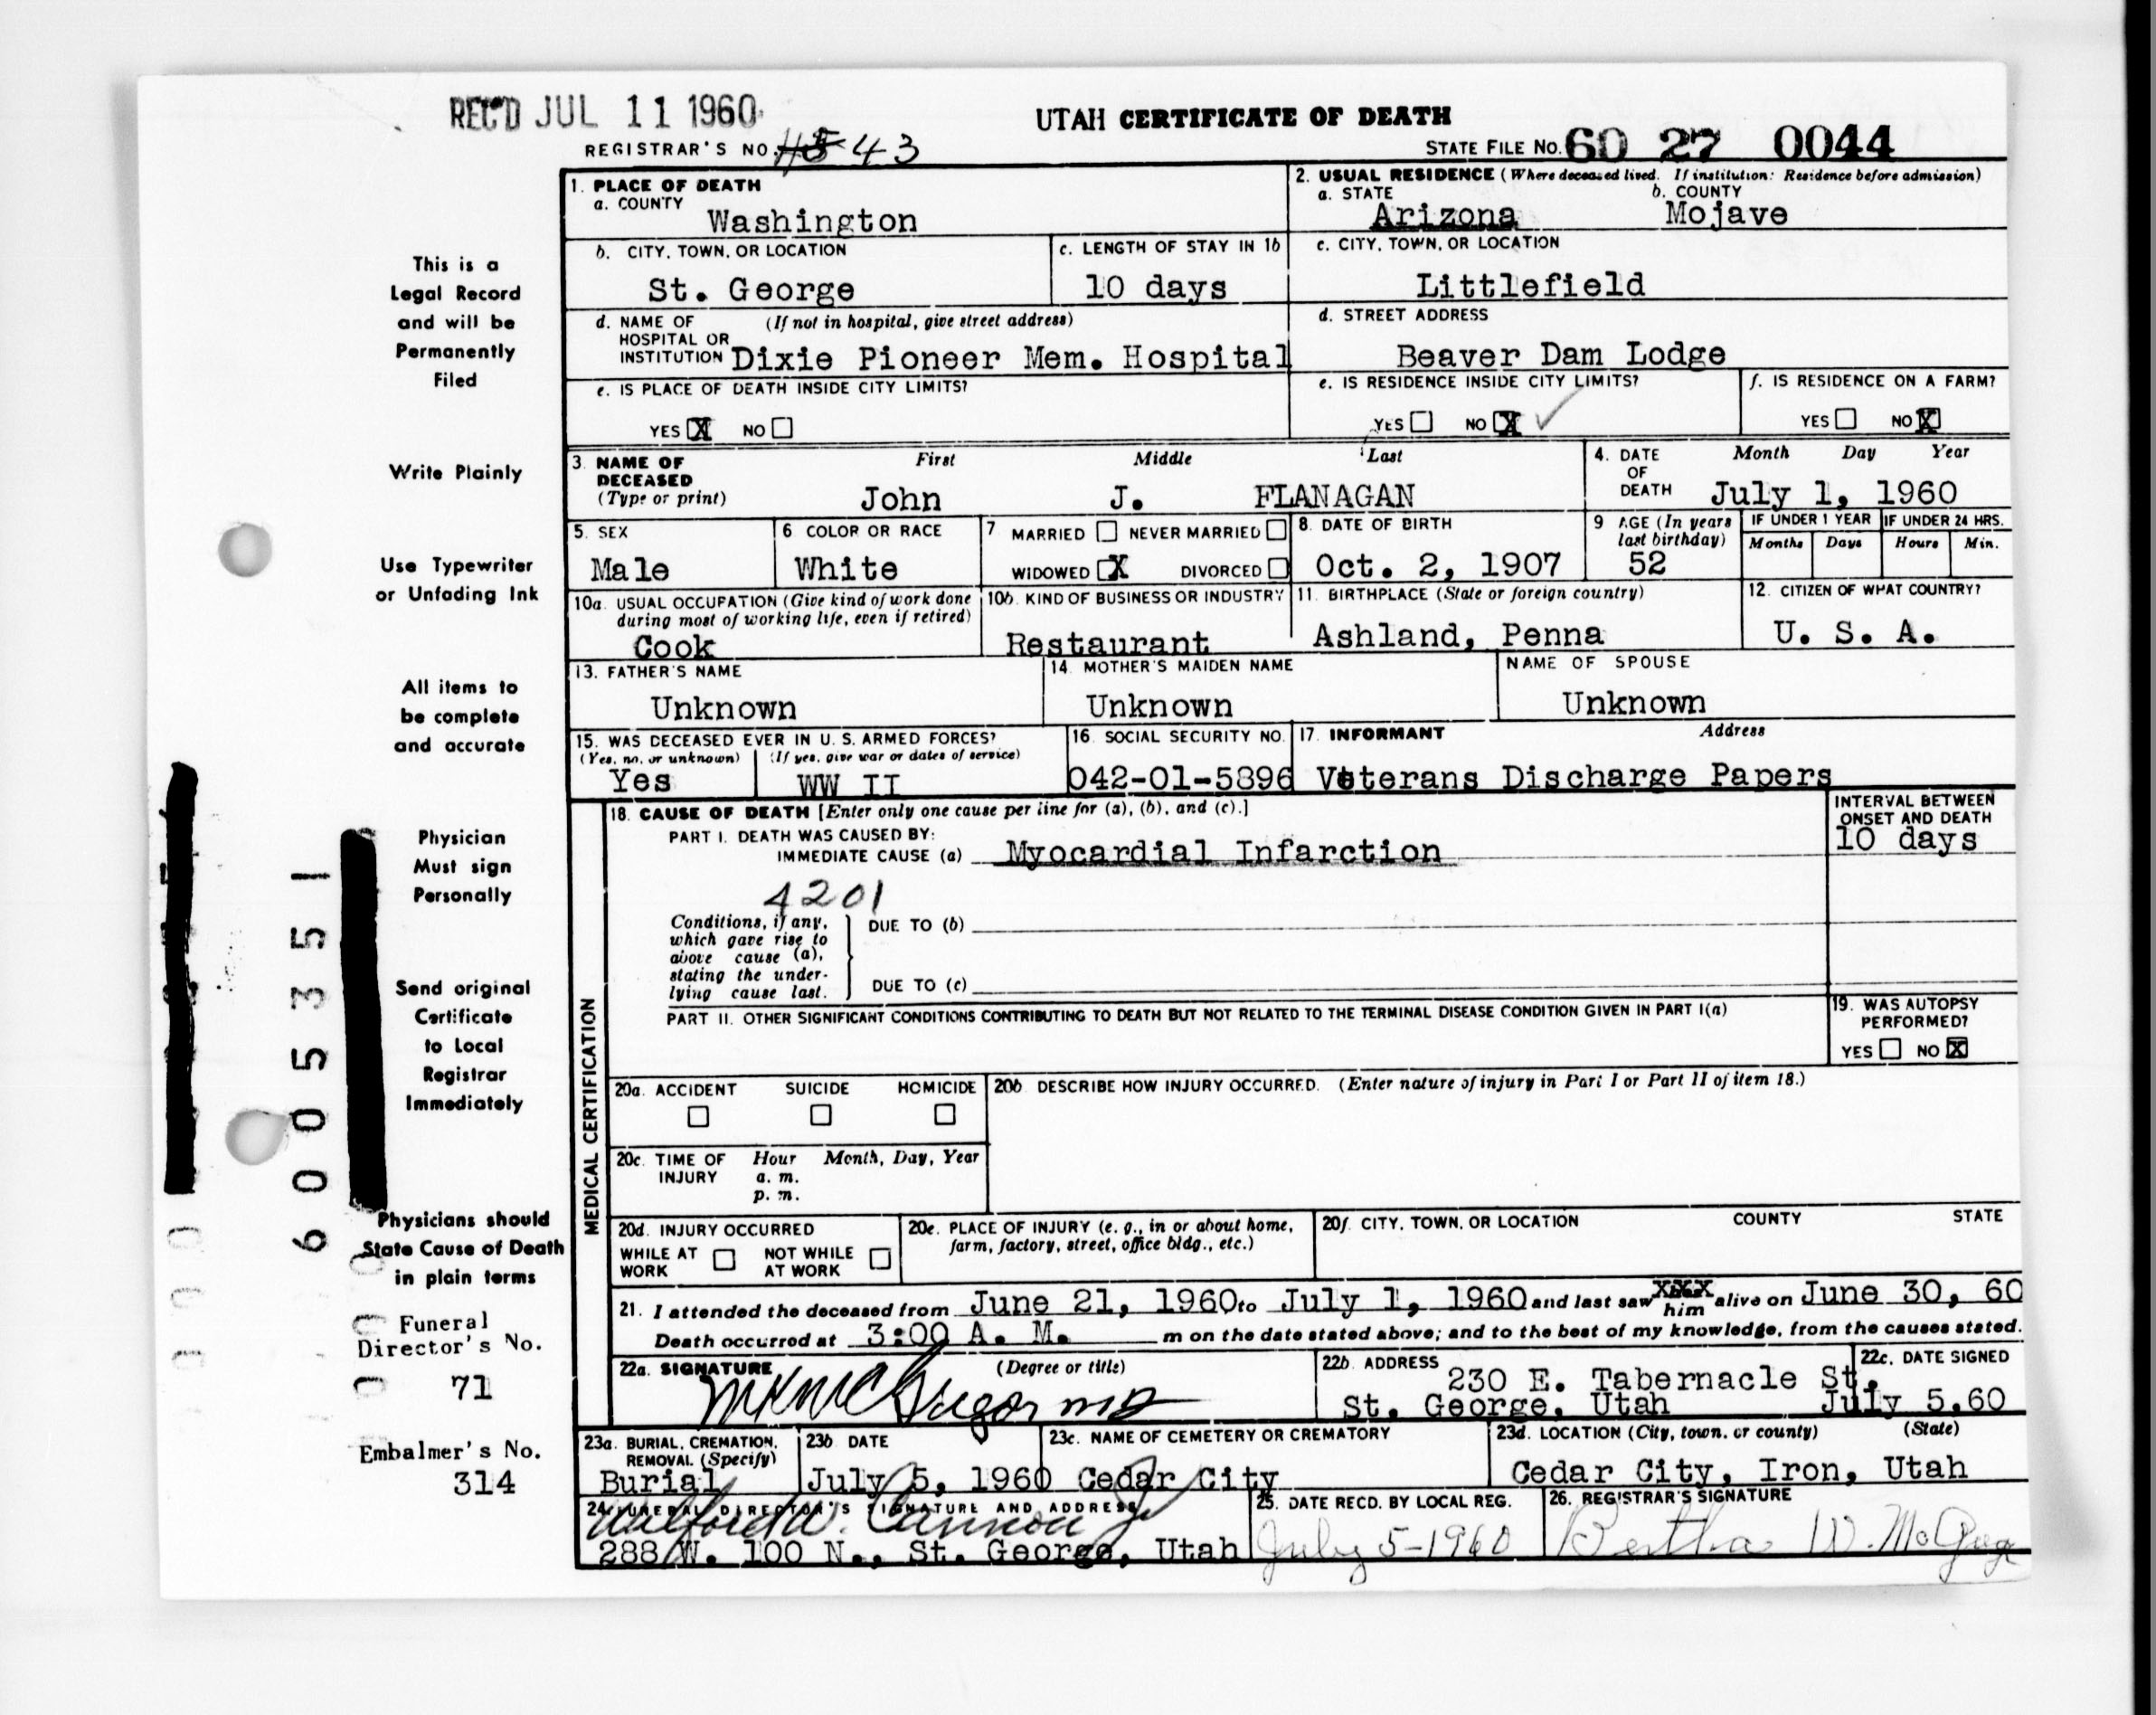 REC'D JUL 11 1960
UTAH CERTIFICATE OF DEATH
REGISTRAR'S NO. 43
STATE FILE NO. 60 27 0044
1. PLACE OF DEATH
a. COUNTY
Washington
2. USUAL RESIDENCE (Where deceased lived. If institution: Residence before admission)
a. STATE b. COUNTY
Arizona Mojave
b. CITY, TOWN, OR LOCATION
St. George
c. LENGTH OF STAY IN 1b
10 days
c. CITY, TOWN, OR LOCATION
Littlefield
d. NAME OF (If not in hospital, give street address)
HOSPITAL OR
INSTITUTION Dixie Pioneer Mem. Hospital
d. STREET ADDRESS
Beaver Dam Lodge
e. IS PLACE OF DEATH INSIDE CITY LIMITS?
YES X NO
e. IS RESIDENCE INSIDE CITY LIMITS?
YES NO X
f. IS RESIDENCE ON A FARM?
YES NO X
3. NAME OF DECEASED (Type or print)
First Middle Last
John J. FLANAGAN
4. DATE OF DEATH
Month Day Year
July 1, 1960
5. SEX
Male
6 COLOR OR RACE
White
7 MARRIED NEVER MARRIED
WIDOWED X DIVORCED
8. DATE OF BIRTH
Oct. 2, 1907
9 AGE (In years last birthday)
52
IF UNDER 1 YEAR
Months Days
IF UNDER 24 HRS.
Hours Min.
10a. USUAL OCCUPATION (Give kind of work done
during most of working life, even if retired)
Cook
10b. KIND OF BUSINESS OR INDUSTRY
Restaurant
11. BIRTHPLACE (State or foreign country)
Ashland, Penna
12. CITIZEN OF WHAT COUNTRY?
U. S. A.
13. FATHER'S NAME
Unknown
14. MOTHER'S MAIDEN NAME
Unknown
NAME OF SPOUSE
Unknown
15. WAS DECEASED EVER IN U. S. ARMED FORCES?
(Yes, no, or unknown) (If yes, give war or dates of service)
Yes WW II
16. SOCIAL SECURITY NO.
042-01-5896
17. INFORMANT Address
Veterans Discharge Papers
MEDICAL CERTIFICATION
18. CAUSE OF DEATH [Enter only one cause per line for (a), (b), and (c).]
PART I. DEATH WAS CAUSED BY:
IMMEDIATE CAUSE (a) Myocardial Infarction
INTERVAL BETWEEN
ONSET AND DEATH
10 days
4201
Conditions, if any,
which gave rise to
above cause (a),
stating the under-
lying cause last.
DUE TO (b)
DUE TO (c)
PART II. OTHER SIGNIFICANT CONDITIONS CONTRIBUTING TO DEATH BUT NOT RELATED TO THE TERMINAL DISEASE CONDITION GIVEN IN PART I(a)
19. WAS AUTOPSY
PERFORMED?
YES NO X
20a. ACCIDENT SUICIDE HOMICIDE
20b. DESCRIBE HOW INJURY OCCURRED. (Enter nature of injury in Part I or Part II of item 18.)
20c. TIME OF INJURY
Hour Month, Day, Year
a. m.
p. m.
20d. INJURY OCCURRED
WHILE AT WORK NOT WHILE AT WORK
20e. PLACE OF INJURY (e. g., in or about home,
farm, factory, street, office bldg., etc.)
20f. CITY, TOWN, OR LOCATION COUNTY STATE
21. I attended the deceased from June 21, 1960 to July 1, 1960 and last saw him alive on June 30, 60
Death occurred at 3:00 A. M. m on the date stated above; and to the best of my knowledge, from the causes stated.
22a. SIGNATURE (Degree or title)
MD
22b. ADDRESS
230 E. Tabernacle St.
St. George, Utah
22c. DATE SIGNED
July 5,60
23a. BURIAL, CREMATION,
REMOVAL (Specify)
Burial
23b. DATE
July 5, 1960
23c. NAME OF CEMETERY OR CREMATORY
Cedar City
23d. LOCATION (City, town, or county) (State)
Cedar City, Iron, Utah
24. FUNERAL DIRECTOR'S SIGNATURE AND ADDRESS
Wilford W. Cannon Jr
288 W. 100 N., St. George, Utah
25. DATE RECD. BY LOCAL REG.
July 5-1960
26. REGISTRAR'S SIGNATURE
Bertha W.
This is a
Legal Record
and will be
Permanently
Filed
Write Plainly
Use Typewriter
or Unfading Ink
All items to
be complete
and accurate
Physician
Must sign
Personally
Send original
Certificate
to Local
Registrar
Immediately
Physicians should
State Cause of Death
in plain terms
Funeral
Director's No.
71
Embalmer's No.
314
6005351